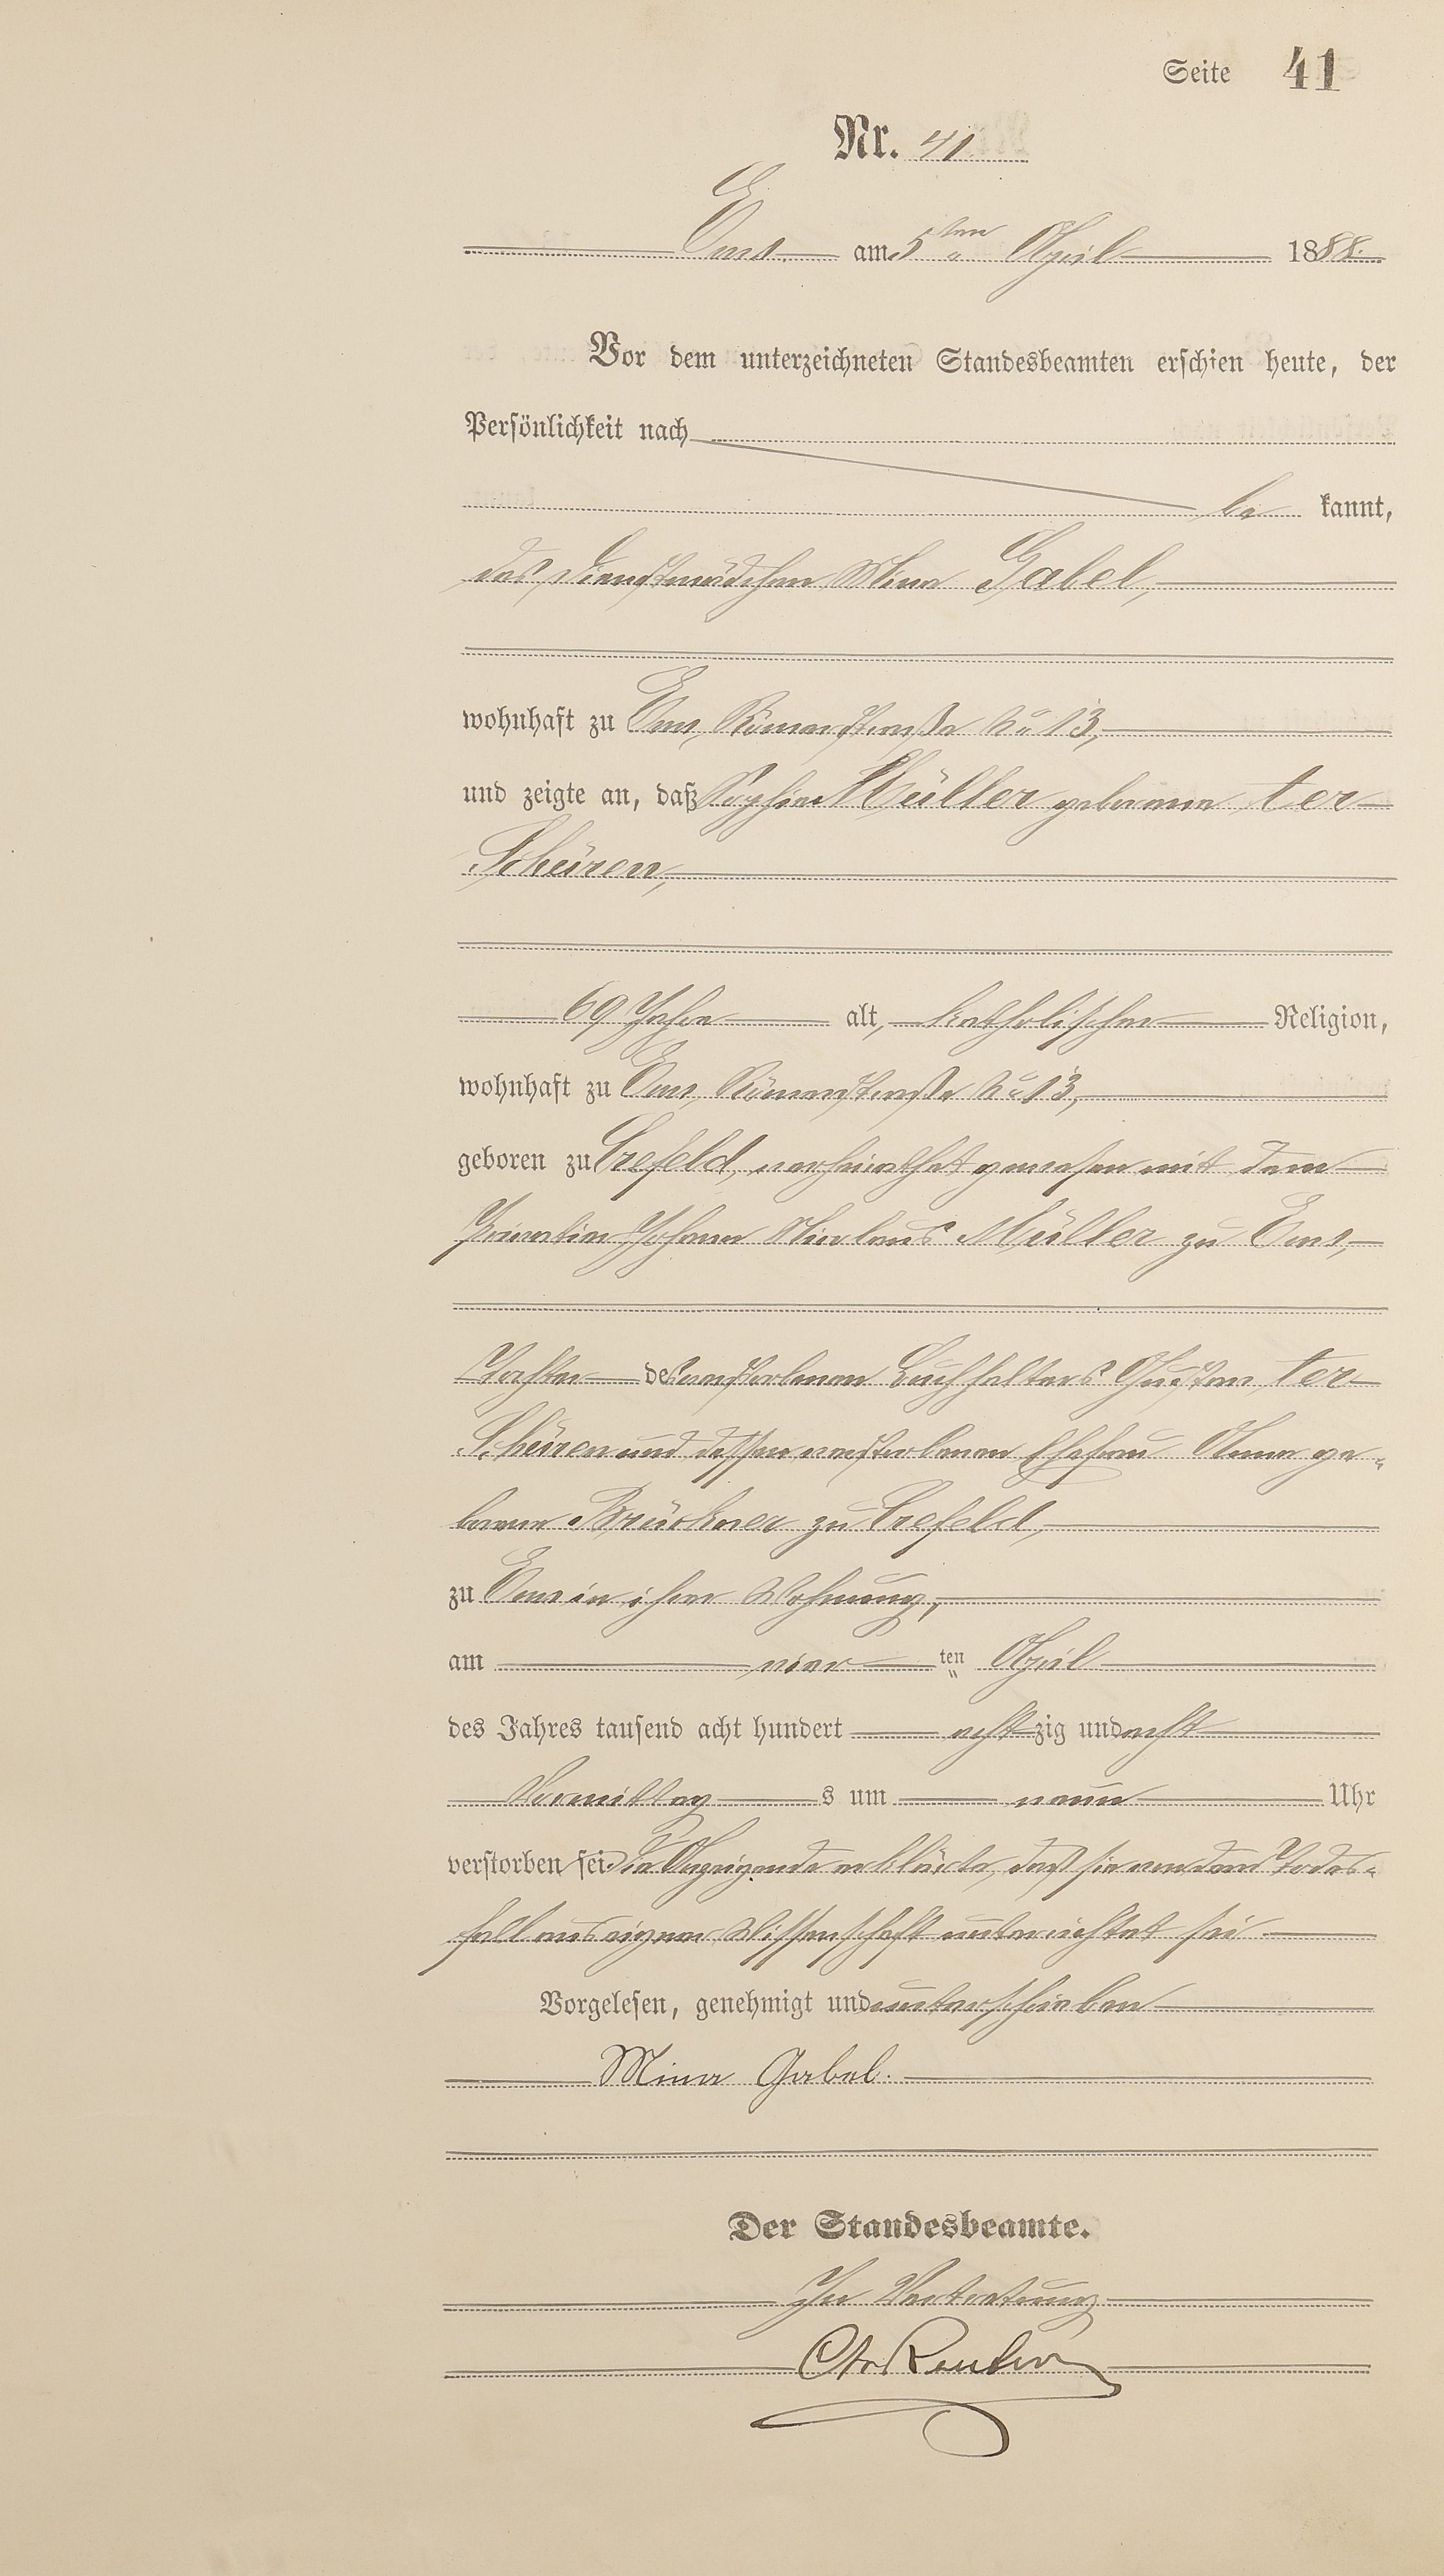 Seite 41
Nr. 41.
Ems am 5ten April 1888.
Vor dem unterzeichneten Standesbeamten erschien heute, der
Persönlichkeit nach
be kannt,
das Dienstmädchen Mina Gabel,
wohnhaft zu Ems, Römerstraße No 13,
und zeigte an, daß Sophie Müller geborene ter
Schüren,
69 Jahre alt, katholischer Religion,
wohnhaft zu Ems, Römerstraße No 13,
geboren zu Crefeld, verheirathet gewesen mit dem
Johann Nicolaus Müller zu Ems,
Tochter des verstorbenen Buchhalters Gustav ter
Schüren und dessen verstorbenen Ehefrau Anna ge-
borene Brückner zu Crefeld,
zu Ems in ihrer Wohnung,
am vier ten April
des Jahres tausend acht hundert acht zig und acht
Vormittag s um neun Uhr
verstorben sei. Die Anzeigende erklärte, daß sie von dem Todes-
fall aus eigener Wissenschaft unterrichtet sei
Vorgelesen, genehmigt und unterschrieben
Mina Gabel.
Der Standesbeamte.
In Vertretung